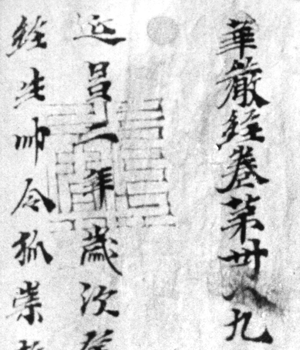 華嚴經卷第卅八九
延昌二年歲次癸
經生帥令狐崇